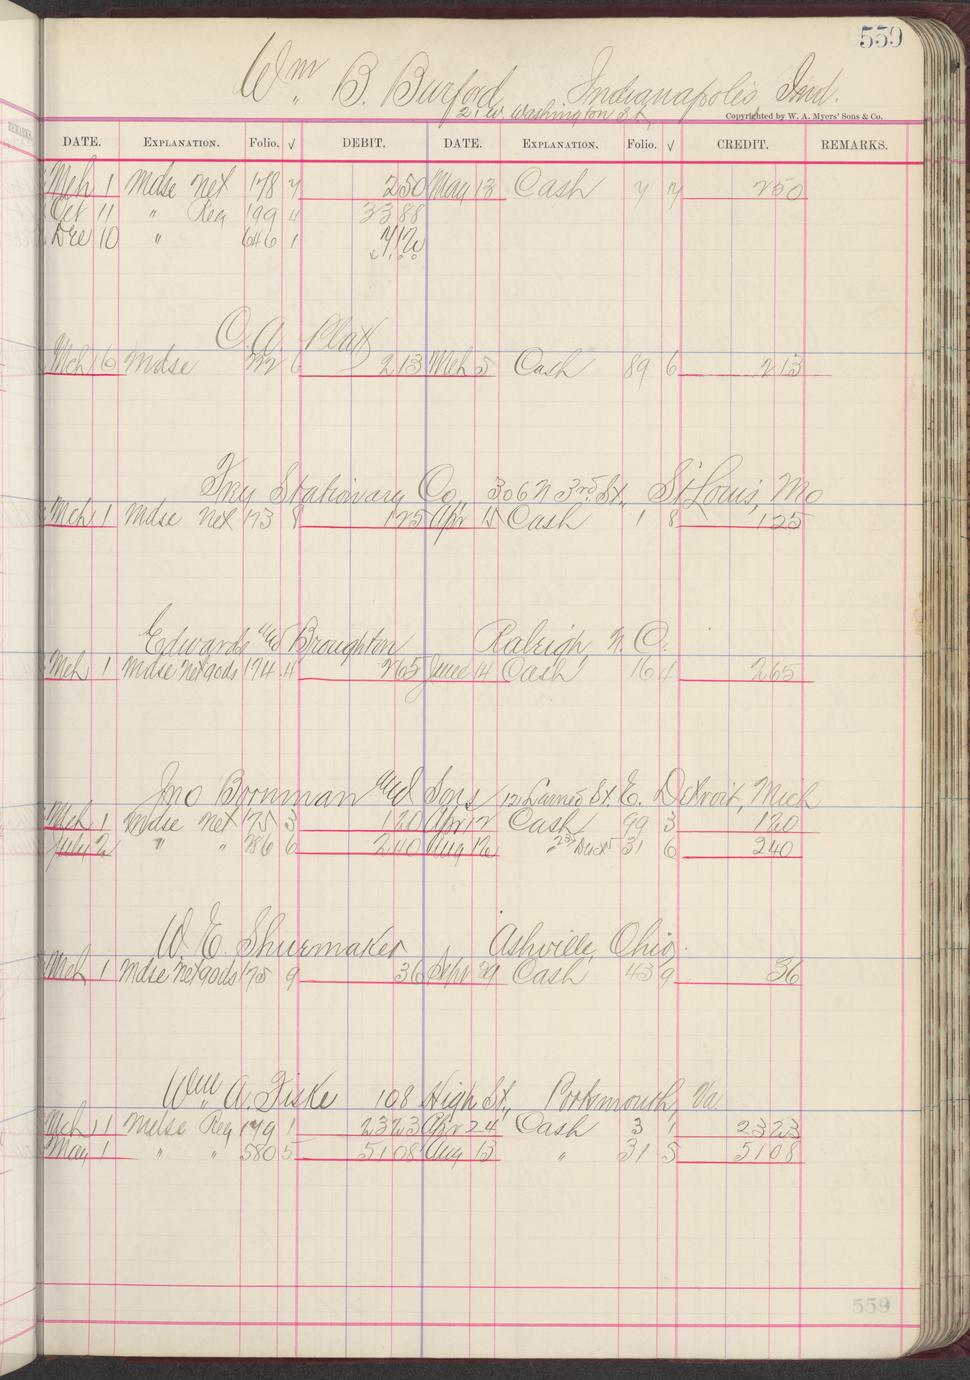 559
Wm B. Burford Indianapolis Ind.
21 W. Washington St,
Copyrighted by W. A. Myers' Sons & Co.
DATE. EXPLANATION. Folio. √ DEBIT. DATE. EXPLANATION. Folio. √ CREDIT. REMARKS.
Mch 1 Mdse Net 178 7 250 May 13 Cash 7 7 250
Oct 11 " Reg 199 4 3388
Dec 10 " 646 1 712
C. A. Platt
Mch 6 Mdse 222 6 213 Mch 5 Cash 89 6 213
Fry Stationary Co., 306 N 3rd St., St Louis, Mo
Mch 1 Mdse Net 173 8 125 Apr 15 Cash 1 8 125
Edwards and Broughton Raleigh N. C.
Mch 1 Mdse net goods 174 4 265 June 14 Cash 16 4 265
Jno Bornman and Sons 121 Larned St. E. Detroit, Mich
Mch 1 Mdse Net 175 3 120 Apr 12 Cash 99 3 120
July 2 " " 286 6 240 Aug 12 " 31 6 240
W. E. Shuemaker Ashville, Ohio.
Mch 1 Mdse net goods 175 9 36 Sept 29 Cash 43 9 36
Wm A. Fiske 108 High St., Portsmouth, Va.
Mch 11 Mdse Reg 179 1 2323 Apr 24 Cash 3 1 2323
May 1 " " 580 5 5108 Aug 13 " 31 5 5108
559